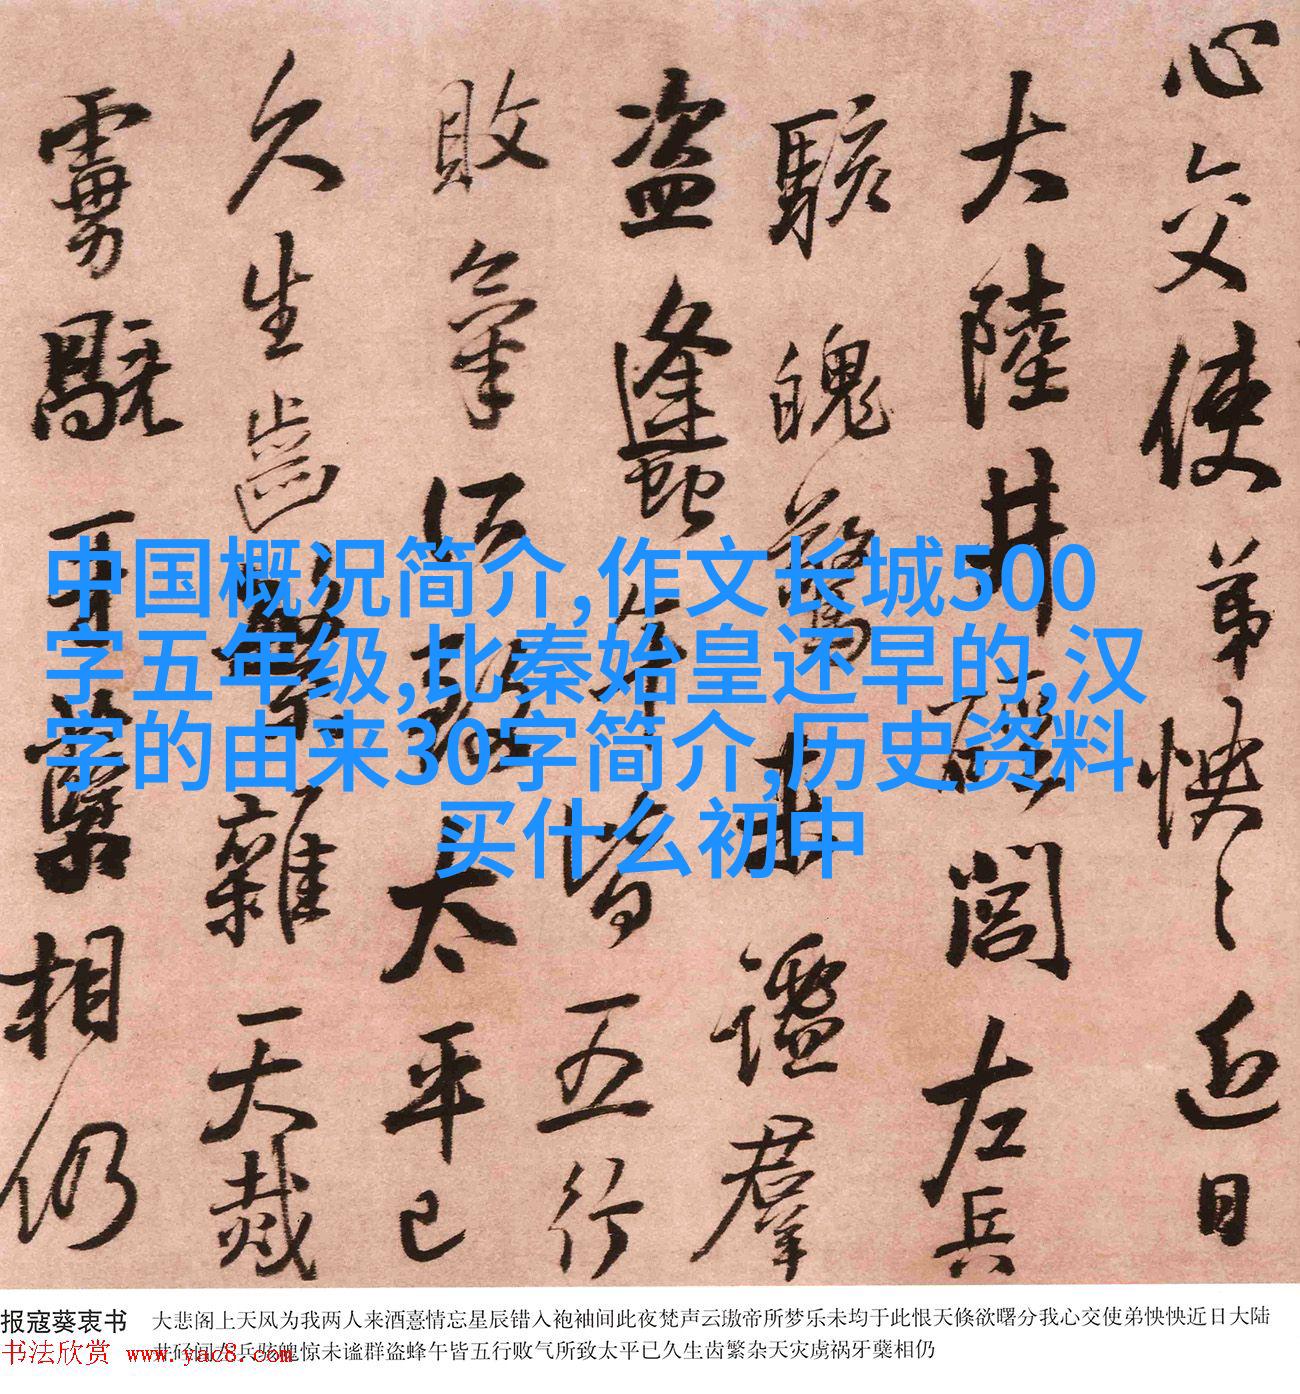 心交使弟怏〻近日
大陸井閤左兵
駭魄驚未謐羣
盗蠭午皆五行
敗氣所致太平已
久生齒繁雜天烖
虜旤牙蘖相仍
中国概况简介,作文长城500
字五年级,比秦始皇还早的,汉
字的由来30字简介,历史资料
买什么初中
报寇葵衷书 大悲阁上天风为我两人来酒憙情忘星辰错入袍袖间此夜梵声云璈帝所梦乐未均于此恨天倏欲曙分我心交使弟怏怏近日大陆
书法欣赏 www.yac8.com 惊未谧群盗蜂午皆五行败气所致太平已久生齿繁杂天灾虏祸牙蘖相仍